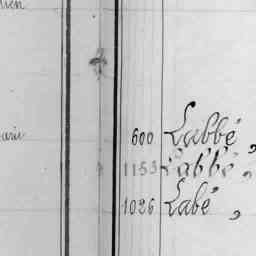 600 Labbé,
1153 Labbé,
1026 Labé,